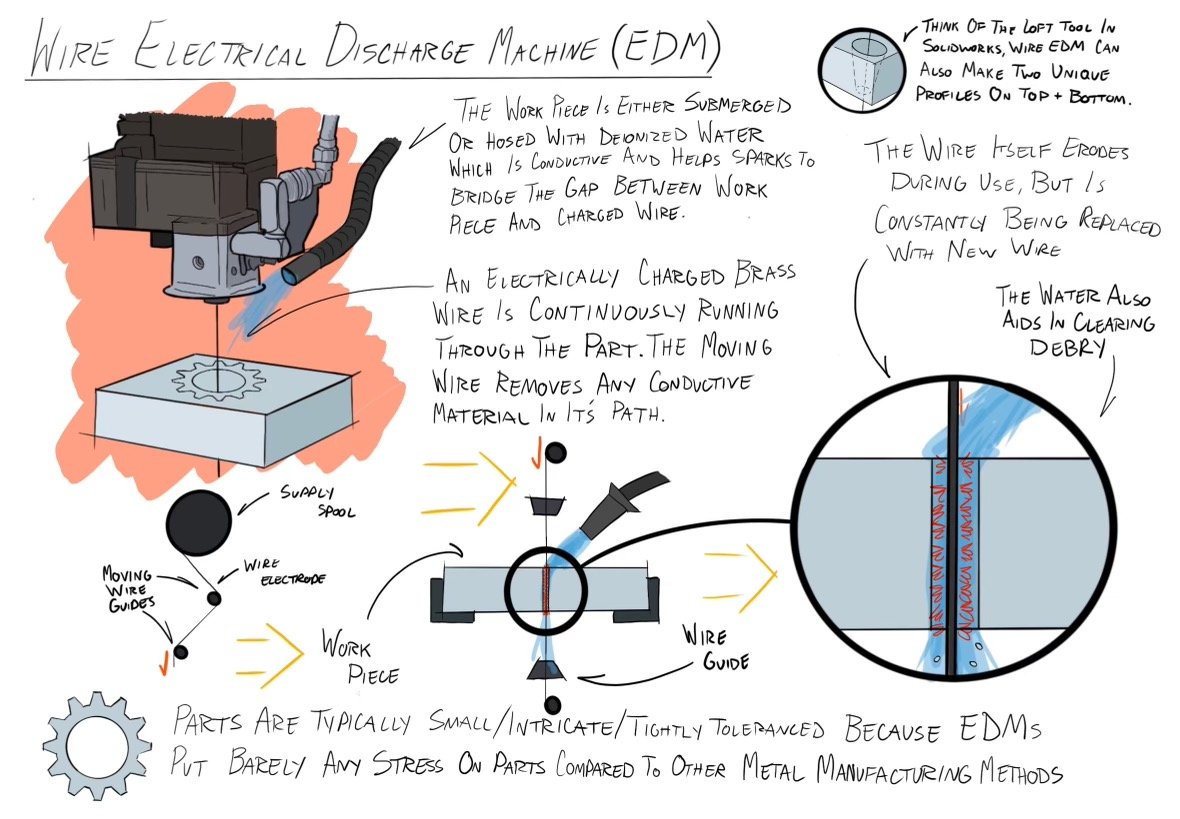 WIRE ELECTRICAL DISCHARGE MACHINE (EDM)
THINK OF THE LOFT TOOL IN
SOLIDWORKS, WIRE EDM CAN
ALSO MAKE TWO UNIQUE
PROFILES ON TOP + BOTTOM.
THE WORK PIECE IS EITHER SUBMERGED
OR HOSED WITH DEIONIZED WATER
WHICH IS CONDUCTIVE AND HELPS SPARKS TO
BRIDGE THE GAP BETWEEN WORK
PIECE AND CHARGED WIRE.
THE WIRE ITSELF ERODES
DURING USE, BUT IS
CONSTANTLY BEING REPLACED
WITH NEW WIRE
AN ELECTRICALLY CHARGED BRASS
WIRE IS CONTINUOUSLY RUNNING
THROUGH THE PART. THE MOVING
WIRE REMOVES ANY CONDUCTIVE
MATERIAL IN IT'S PATH.
THE WATER ALSO
AIDS IN CLEARING
DEBRY
SUPPLY
SPOOL
WIRE
ELECTRODE
MOVING
WIRE
GUIDES
WORK
PIECE
WIRE
GUIDE
PARTS ARE TYPICALLY SMALL/INTRICATE/TIGHTLY TOLERANCED BECAUSE EDMS
PUT BARELY ANY STRESS ON PARTS COMPARED TO OTHER METAL MANUFACTURING METHODS